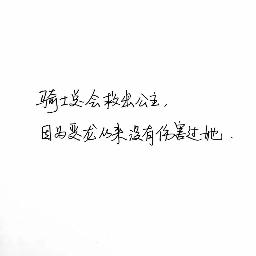 骑士总会救出公主，
因为恶龙从来没有伤害过她.